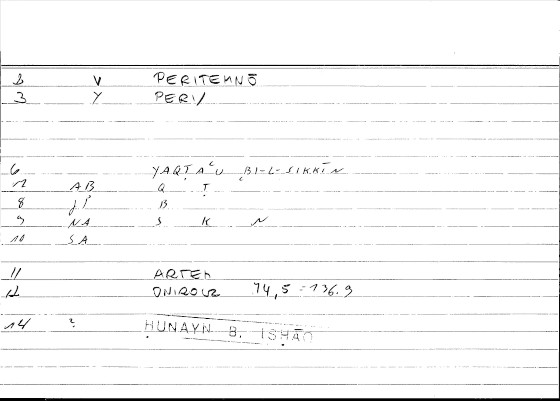 2 V PERITEMNŌ
3 Y PERI/
6 YAQṬAʿU BI-L-SIKKĪN
7 AB Q Ṭ
8 JI B
9 NA S K N
10 SA
11 ARTEM
12 ONIROCR 74,5 = 136.9
14 ? ḤUNAYN B. ISḤĀQ